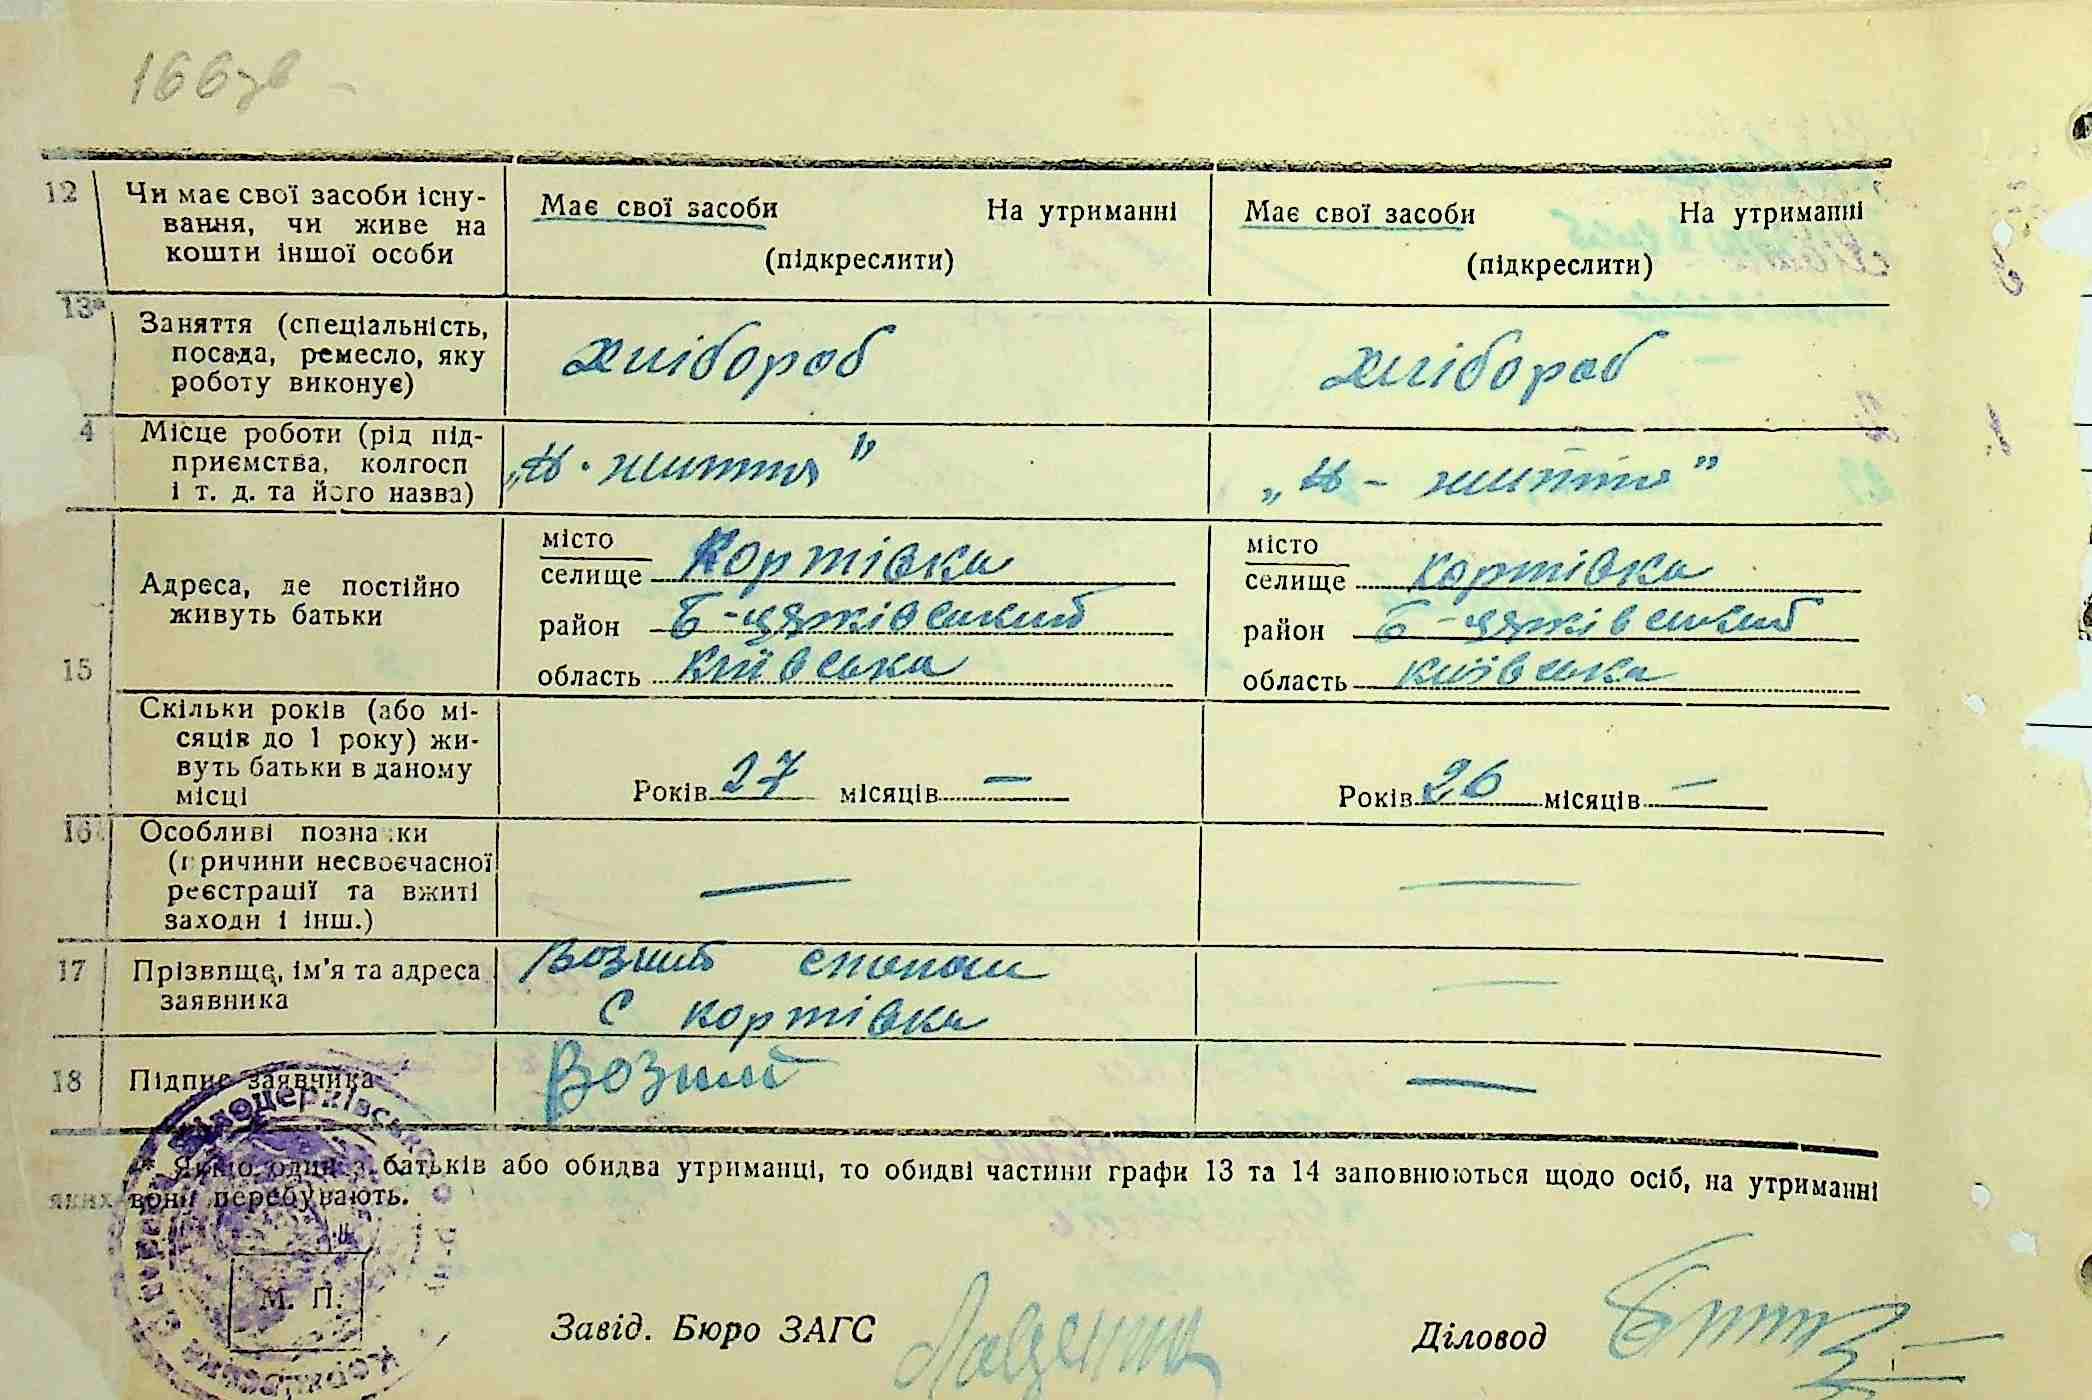 166зв
12 Чи має свої засоби існу- Має свої засоби На утриманні Має свої засоби На утриманні
вання, чи живе на
кошти іншої особи (підкреслити) (підкреслити)
13* Заняття (спеціальність,
посада, ремесло, яку хлібороб хлібороб
роботу виконує)
4 Місце роботи (рід під-
приємства, колгосп „Н. життя" „Н - життя"
і т. д. та його назва)
місто місто
селище Кортівка селище Кортівка
Адреса, де постійно
живуть батьки район Б-церківський район Б-церківський
15 область Київська область Київська
Скільки років (або мі-
сяців до 1 року) жи-
вуть батьки в даному Років 27 місяців — Років 26 місяців —
місці
16 Особливі познаки
(причини несвоєчасної
реєстрації та вжиті — —
заходи і інш.)
17 Прізвище, ім'я та адреса Возний Степан —
заявника с Кортівка
18 Підпис заявника Возний —
* Якщо один з батьків або обидва утриманці, то обидві частини графи 13 та 14 заповнюються щодо осіб, на утриманні
яких вони перебувають.
Білоцерківсько
М. П.
Завід. Бюро ЗАГС Діловод